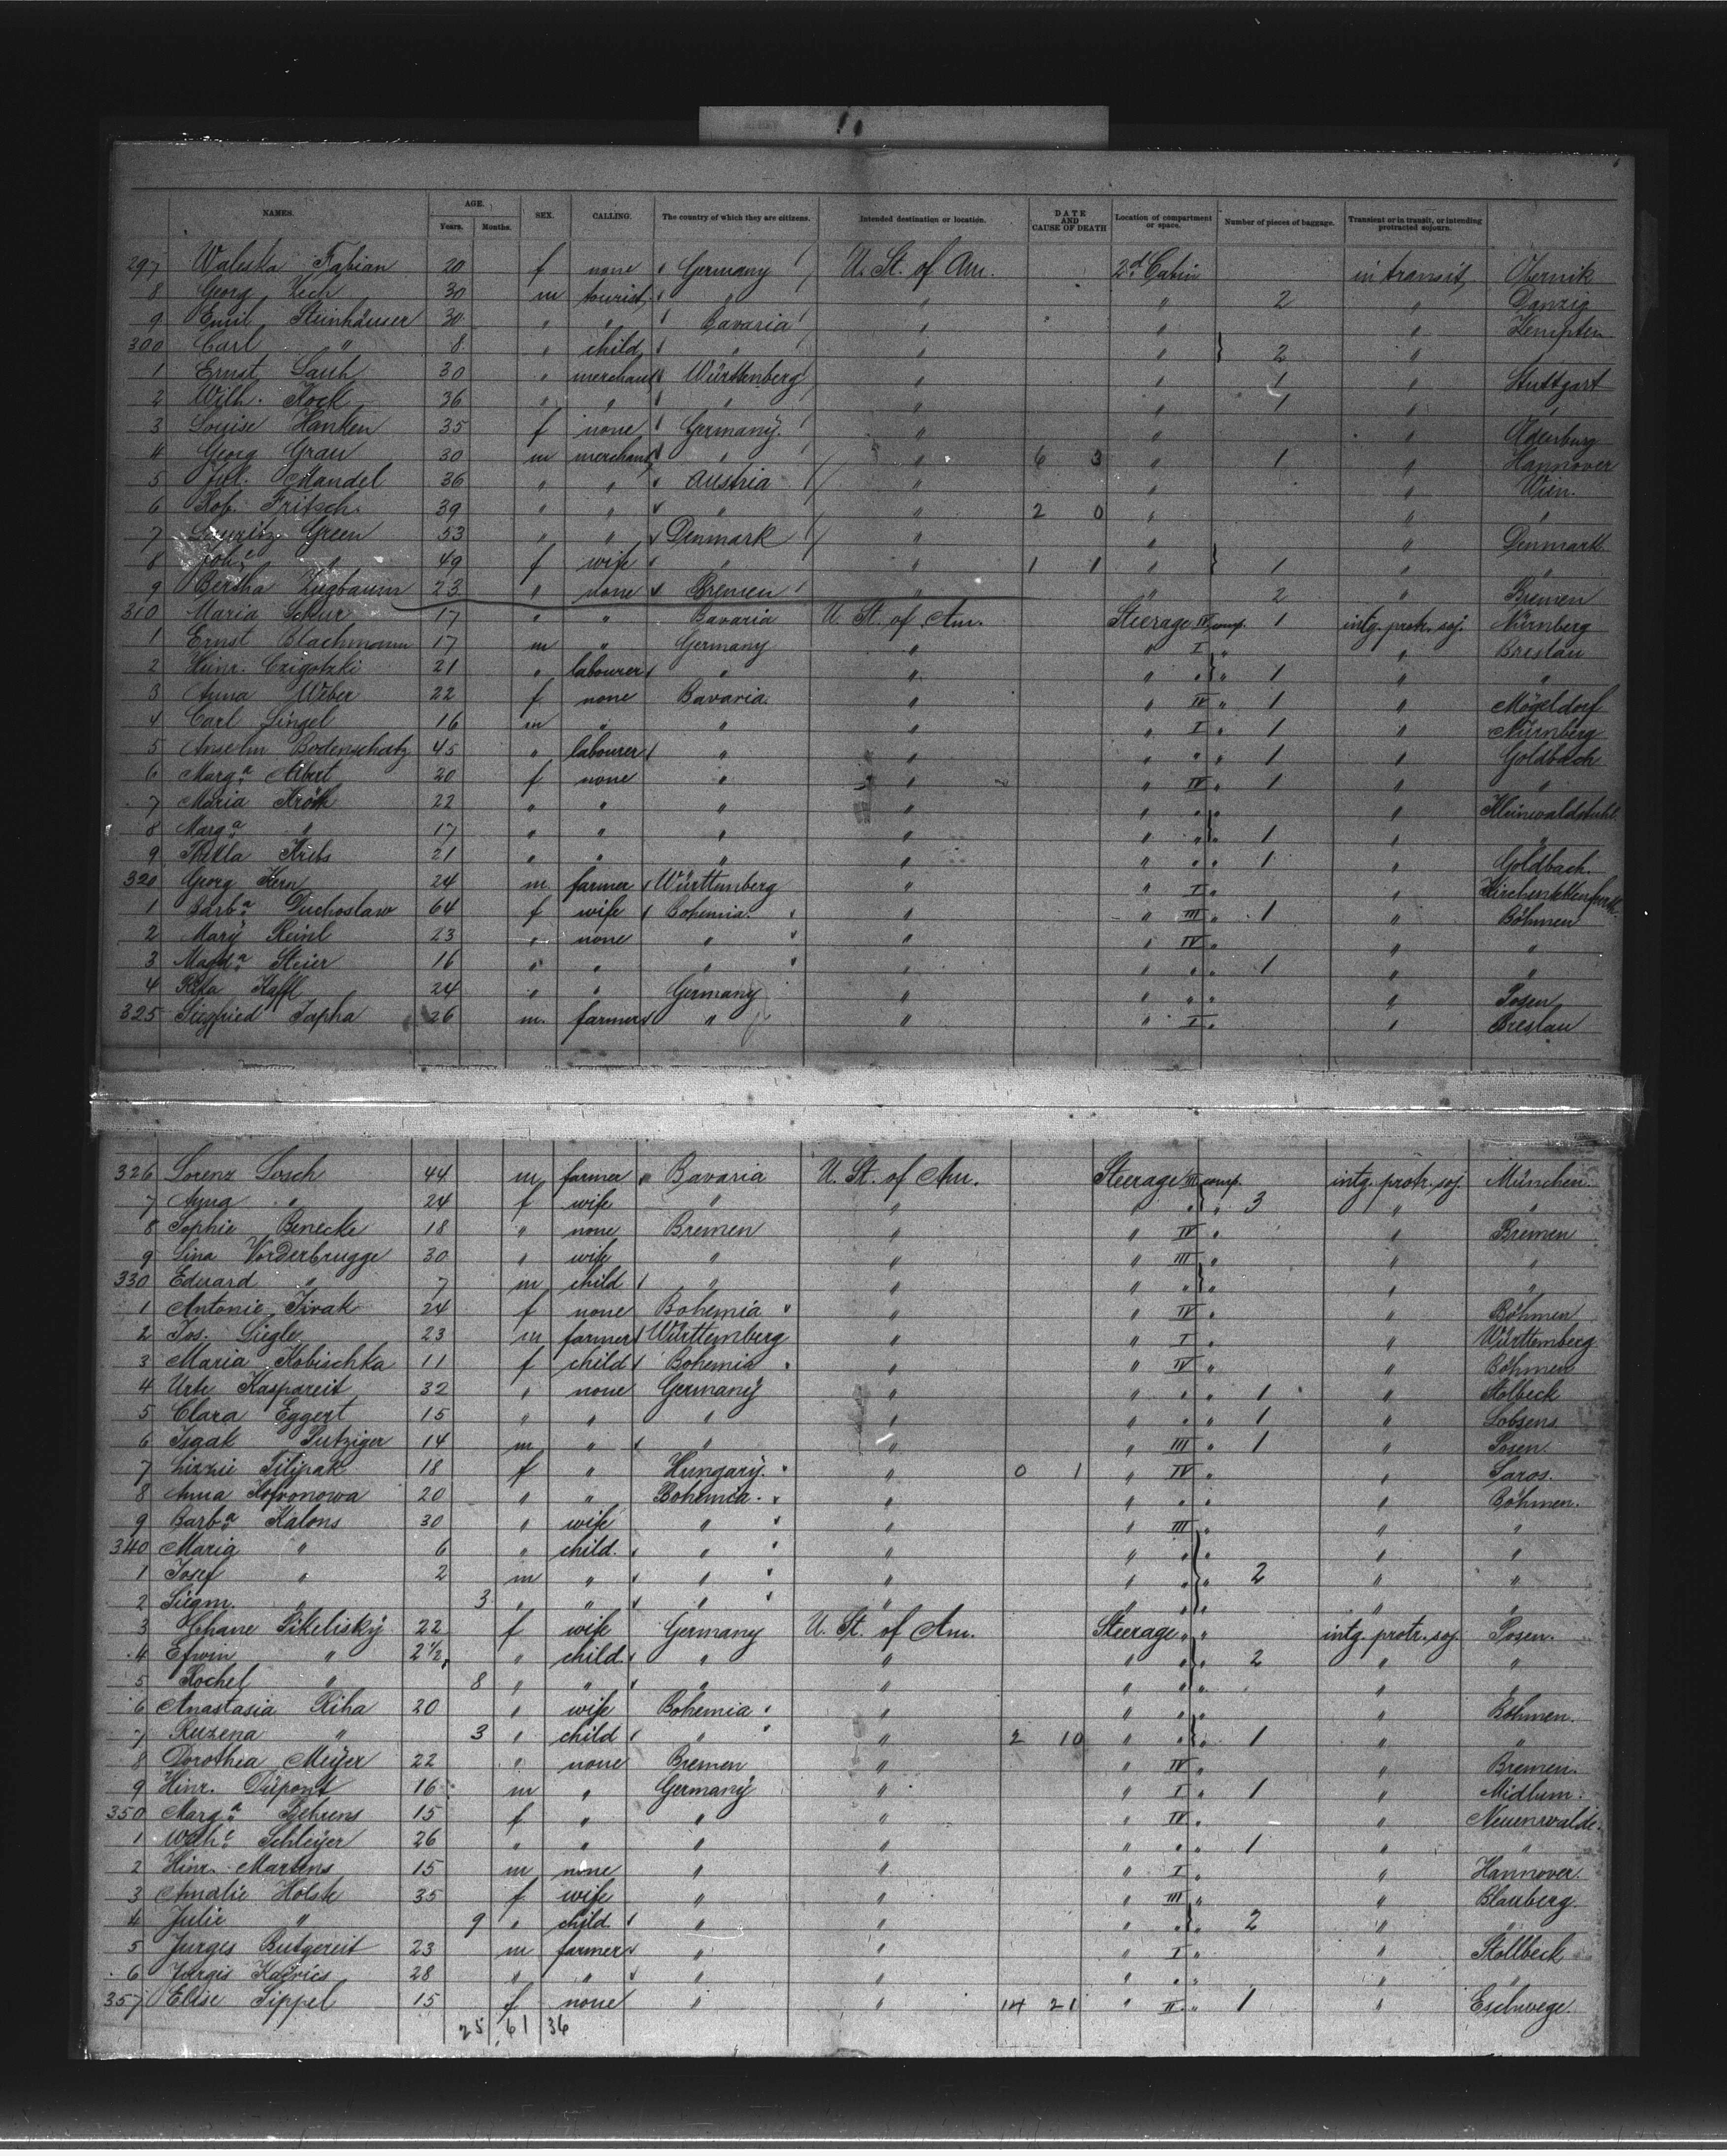 NAMES. AGE. Years. Months. SEX. CALLING. The country of which they are citizens. Intended destination or location. DATE AND CAUSE OF DEATH Location of compartment or space. Number of pieces of baggage. Transient or in transit, or intending protracted sojourn.
297 Waleska Fabian 20 f none Germany U. St. of Am. 2d Cabin in transit Obernik
8 Georg Zech 30 m tourist " " " 2 " Danzig
9 Emil Steinhäuser 30 " " Bavaria " " " Kempten
300 Carl " 8 " child " " " 2 "
1 Ernst 30 " merchant Württenberg " " 1 " Stuttgart
2 Wilh. Kock 36 " " " " " 1 " "
3 Louise Hanken 35 f none Germany " " " Oldenburg
4 Georg Grau 30 m merchant " " 6 3 " 1 " Hannover
5 Jul. Mandel 36 " " Austria " " " Wien.
6 Rob. Fritsch 39 " " " " 2 0 " " "
7 Lauritz Green 53 " " Denmark " " " Denmark
8 " 49 f wife " " 1 1 " 1 " "
9 Bertha 23 " none Bremen " " 2 " Bremen
310 Maria Schur 17 " " Bavaria U. St. of Am. Steerage IV comp. 1 intg. protr. soj. Nürnberg
1 Ernst Blachmann 17 m " Germany " " I " " Breslau
2 Heinr. Czigotzki 21 " labourer " " " " " 1 " "
3 Anna Weber 22 f none Bavaria " " IV " 1 " Mögeldorf
4 Carl Singel 16 m " " " " I " 1 " Nürnberg
5 Anselm Bodenschatz 45 " labourer " " " " " 1 " Goldbach
6 Marga Albert 20 f none " " " IV " 1 " "
7 Maria 22 " " " " " " " "
8 Marga " 17 " " " " " " " 1 " "
9 Thekla Krebs 21 " " " " " " " 1 " Goldbach.
320 Georg Kern 24 m. farmer Württemberg " " I " "
1 Barba Duchoslaw 64 f wife Bohemia. " " III " 1 " Böhmen
2 Mary Reinl 23 " none " " " IV " " "
3 Magda Steier 16 " " " " " " " 1 " "
4 Kaffl 24 " " Germany " " " " " Posen
325 Siegfried Japha 26 m. farmer " " " I " " Breslau
326 Lorenz Losch 44 m farmer Bavaria U. St. of Am. Steerage III comp. intg. protr. soj. München.
7 " 24 f wife " " " " " 3 " "
8 Sophie Benecke 18 " none Bremen " " IV " " Bremen
9 Lina Vorderbrugge 30 " wife " " " III " " "
330 Eduard " 7 m child " " " " " " "
1 Antonie 24 f none Bohemia " " IV " " Böhmen
2 Jos. Siegle 23 m farmer Württemberg " " I " " Württemberg
3 Maria Kobischka 11 f child Bohemia " " IV " " Böhmen
4 Urte Kaspareit 32 " none Germany " " " " 1 " Stolbeck
5 Clara Eggert 15 " " " " " " " 1 " Lobsens
6 Isaak Putziger 14 m " " " " III " 1 " Posen.
7 Lizzie Filipak 18 f " Hungary. " 0 1 " IV " " Saros.
8 Anna Kofronowa 20 " " Bohemia. " " " " " Böhmen.
9 Barba Kalons 30 " wife " " " III " " "
340 Maria " 6 " child. " " " " " " "
1 Josef " 2 m " " " " " " 2 " "
2 Siegm. " 3 " " " " " " " " "
3 Chane 22 f wife Germany U. St. of Am. Steerage " " intg. protr. soj. Posen.
4 Efwin " 2½ " child " " " " " 2 " "
5 Rochel " 8 " " " " " " " " "
6 Anastasia Riha 20 " wife Bohemia " " " " " Böhmen.
7 Ruzena " 3 " child " " 2 10 " " " 1 " "
8 Dorothea Meÿer 22 " none Bremen " " IV " " Bremen.
9 Hinr. Düpont 16 m " Germany " " I " 1 " Midlum.
350 Marga Behrens 15 f " " " " IV " " Neuenwalde.
1 Wilhe Schleÿer 26 " " " " " " " 1 " "
2 Hinr. Martens 15 m none " " " I " " Hannover.
3 Amalie Holste 35 f wife " " " III " " Blauberg.
4 Julie " 9 " child " " " " " 2 " "
5 Jurges Butgereit 23 m farmer " " " I " " Stollbeck
6 Jurgis 28 " " " " " " " " "
357 Elise Sippel 15 f none " " 14 21 " II " 1 " Eschwege.
25 61 36